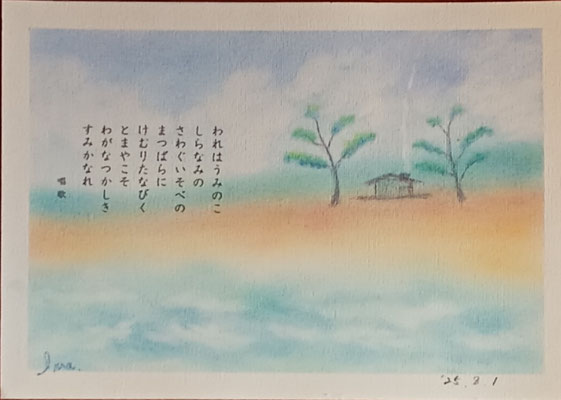 われはうみのこ
しらなみの
さわぐいそべの
まつばらに
けむりたなびく
とまやこそ
わがなつかしき
すみかなれ
唱歌
'25.8.1